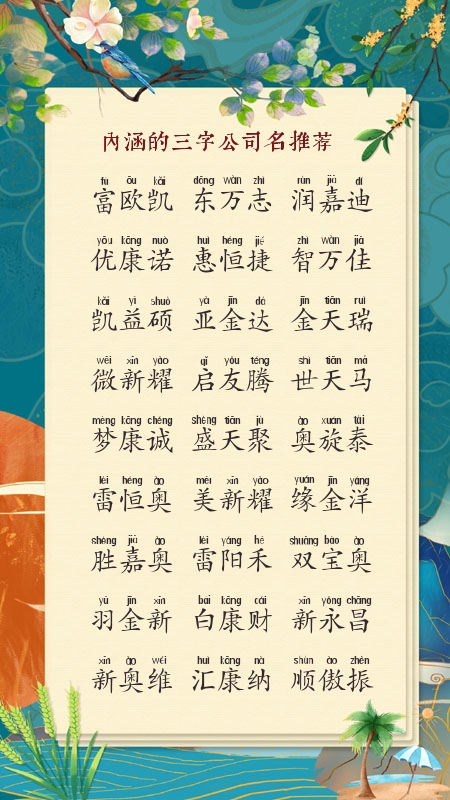 内涵的三字公司名推荐
fù ōu kǎi dōng wàn zhì rùn jiā dí
富欧凯 东万志 润嘉迪
yōu kāng nuò huì héng jié zhì wàn jiā
优康诺 惠恒捷 智万佳
kǎi yì shuò yà jīn dá jīn tiān ruì
凯益硕 亚金达 金天瑞
wēi xīn yào qǐ yǒu téng shì tiān mǎ
微新耀 启友腾 世天马
mèng kāng chéng shèng tiān jù ào xuán tài
梦康诚 盛天聚 奥旋泰
léi héng ào měi xīn yào yuán jīn yáng
雷恒奥 美新耀 缘金洋
shèng jiā ào léi yáng hé shuāng bǎo ào
胜嘉奥 雷阳禾 双宝奥
yǔ jīn xīn bái kāng cái xīn yǒng chāng
羽金新 白康财 新永昌
xīn ào wéi huì kāng nà shùn ào zhèn
新奥维 汇康纳 顺傲振